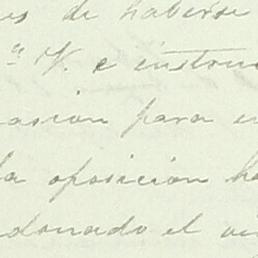 es de haberse
a V. e instru
asion para e
la oposición ha
donado el